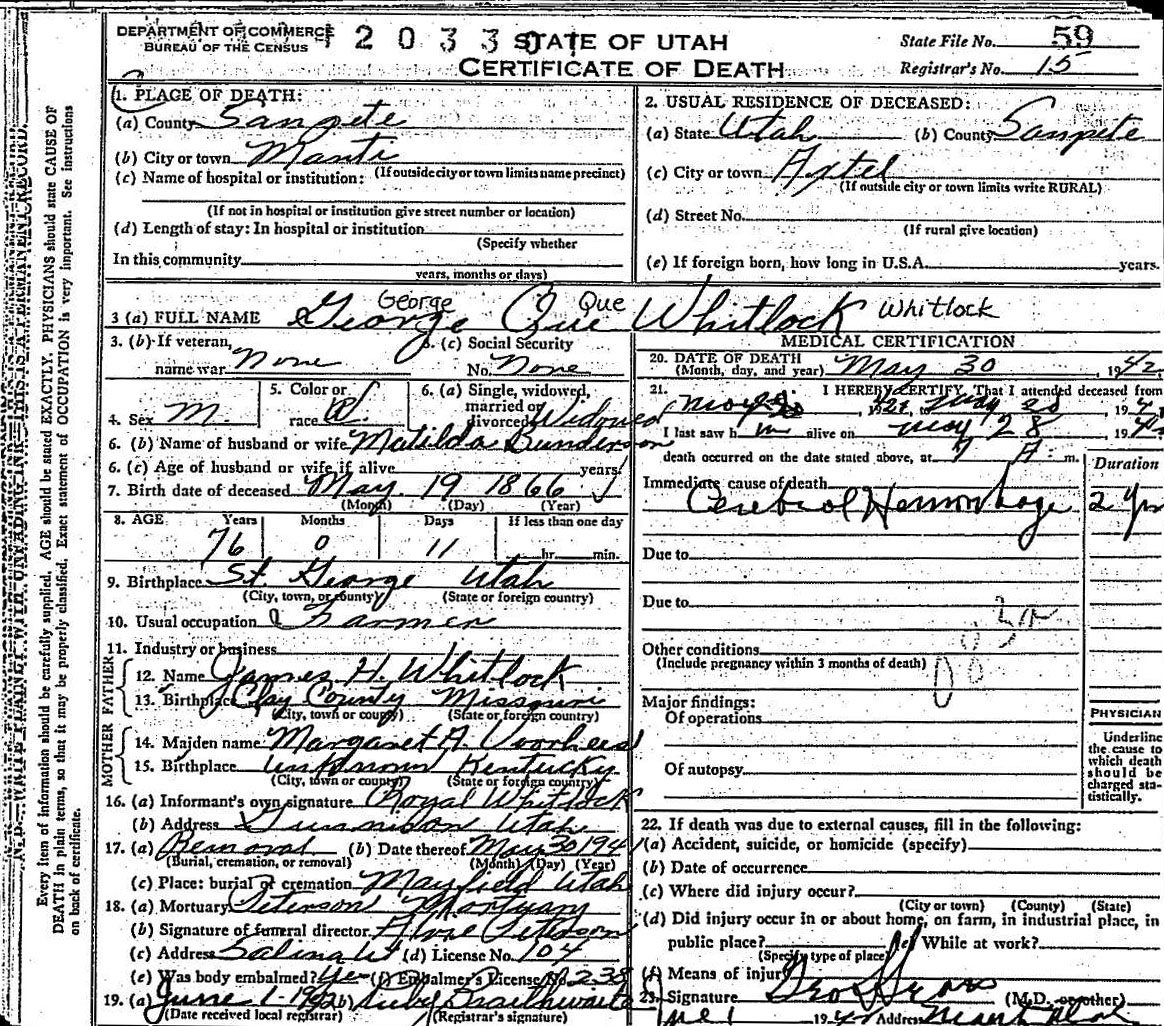 DEPARTMENT OF COMMERCE
BUREAU OF THE CENSUS
2 0 3 3 0
STATE OF UTAH
CERTIFICATE OF DEATH
State File No. 59
Registrar's No. 15
1. PLACE OF DEATH:
(a) County Sanpete
(b) City or town Manti
(If outside city or town limits name precinct)
(c) Name of hospital or institution:
(If not in hospital or institution give street number or location)
(d) Length of stay: In hospital or institution
(Specify whether
In this community
years, months or days)
2. USUAL RESIDENCE OF DECEASED:
(a) State Utah (b) County Sanpete
(c) City or town Axtel
(If outside city or town limits write RURAL)
(d) Street No.
(If rural give location)
(e) If foreign born, how long in U.S.A. years.
George Que Whitlock
3 (a) FULL NAME George Que Whitlock
3. (b) If veteran, name war None
3. (c) Social Security No. None
4. Sex M.
5. Color or race W.
6. (a) Single, widowed, married or divorced Widowed
6. (b) Name of husband or wife Matilda Bunderson
6. (c) Age of husband or wife if alive years
7. Birth date of deceased May. 19 1866
(Month) (Day) (Year)
8. AGE Years Months Days If less than one day
76 0 11 hr. min.
9. Birthplace St. George Utah
(City, town, or county) (State or foreign country)
10. Usual occupation Farmer
11. Industry or business
FATHER
12. Name James H. Whitlock
13. Birthplace Clay County Missouri
(City, town or county) (State or foreign country)
MOTHER
14. Maiden name Margaret A. Voorhees
15. Birthplace unknown Kentucky
(City, town or county) (State or foreign country)
16. (a) Informant's own signature Royal Whitlock
(b) Address Gunnison Utah
17. (a) Removal (b) Date thereof May 30 194
(Burial, cremation, or removal) (Month) (Day) (Year)
(c) Place: burial or cremation Mayfield Utah
18. (a) Mortuary Peterson Mortuary
(b) Signature of funeral director Peterson
(c) Address Salina Ut (d) License No. 104
(e) Was body embalmed? Yes (f) Embalmer's License No. 238
19. (a) June 1 - 1942 (b) Ruby Braithwaite
(Date received local registrar) (Registrar's signature)
MEDICAL CERTIFICATION
20. DATE OF DEATH
(Month, day, and year) May 30, 1942
21. I HEREBY CERTIFY, That I attended deceased from
May 30, 194
I last saw h im alive on May 28, 194
death occurred on the date stated above, at 7 A m.
Duration
Immediate cause of death
Cerebral Hemorrhage 2 yrs
Due to
Due to
Other conditions
(Include pregnancy within 3 months of death)
Major findings:
Of operations
Of autopsy
PHYSICIAN
Underline
the cause to
which death
should be
charged sta-
tistically.
22. If death was due to external causes, fill in the following:
(a) Accident, suicide, or homicide (specify)
(b) Date of occurrence
(c) Where did injury occur?
(City or town) (County) (State)
(d) Did injury occur in or about home, on farm, in industrial place, in
public place? (e) While at work?
(Specify type of place)
(f) Means of injury
23. Signature (M.D. or other)
194 Address Manti Utah
Every item of information should be carefully supplied. AGE should be stated EXACTLY. PHYSICIANS should state CAUSE OF
DEATH in plain terms, so that it may be properly classified. Exact statement of OCCUPATION is very important. See instructions
on back of certificate.